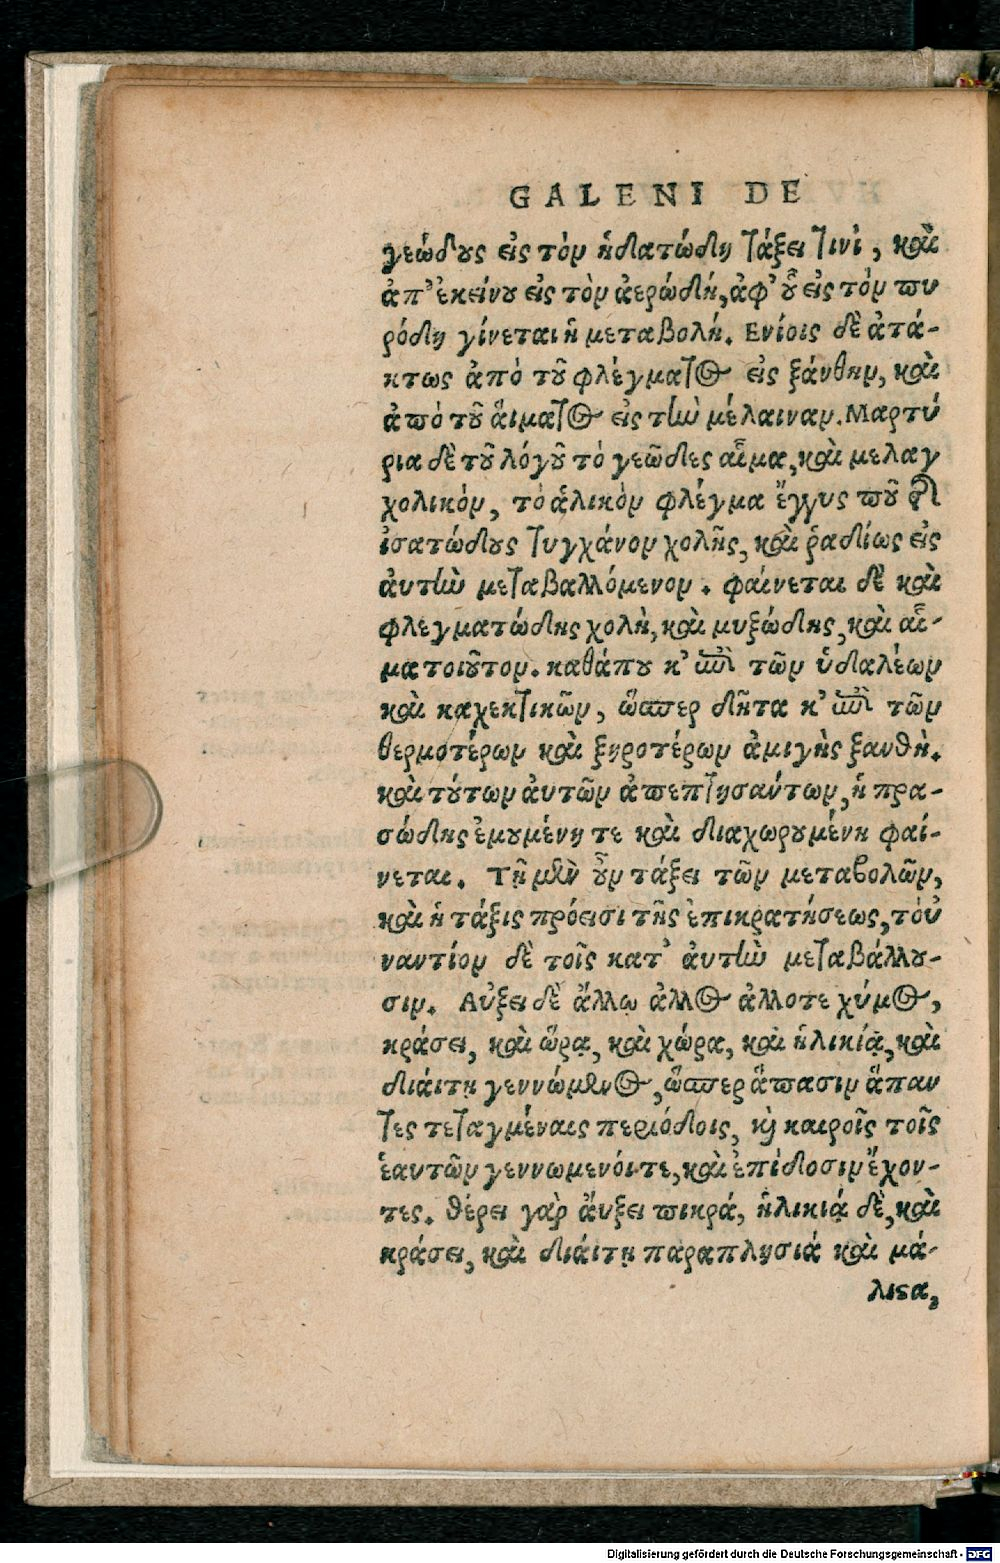 GALENI DE
γεώδους εἰς τὸν ἡδατώδη τάξει τινὶ, καὶ
ἀπ’ ἐκείνου εἰς τὸν ἀερώδη, ἀφ’ οὗ εἰς τὸν πυ
ρόδη γίνεται ἡ μεταβολή. Ενίοις δὲ ἀτά-
κτως ἀπὸ τοῦ φλέγματος εἰς ξάνθην, καὶ
ἀπὸ τοῦ ἅιματος εἰς τὴν μέλαιναν. Μαρτύ
ρια δὲ τοῦ λόγου τὸ γεῶδες αἷμα, καὶ μελαγ
χολικὸν, τὸ ἁλικὸν φλέγμα ἔγγυς που
ἰσατώδους τυγχάνον χολῆς, καὶ ῥαδίως εἰς
ἀυτὴν μεταβαλλόμενον. φαίνεται δὲ καὶ
φλεγματώδης χολὴ, καὶ μυξώδης, καὶ αἷ-
μα τοιοῦτον. καθάπου κ’ ἐπὶ τῶν ὑδαλέων
καὶ καχεκτικῶν, ὥσπερ δῆτα κ’ ἐπὶ τῶν
θερμοτέρων καὶ ξηροτέρων ἀμιγὴς ξανθὴ.
καὶ τούτων ἀυτῶν ἀπεπτησάντων, ἡ πρα-
σώδης ἐμουμένη τε καὶ διαχωρουμένη φαί-
νεται. Τῇ μὲν οὖν τάξει τῶν μεταβολῶν,
καὶ ἡ τάξις πρόεισι τῆς ἐπικρατήσεως, τοὐ
ναντίον δὲ τοῖς κατ’ ἀυτὴν μεταβάλλου-
σιν. Αὔξει δὲ ἄλλῳ ἀλλος ἀλλοτε χύμος,
κράσει, καὶ ὥρᾳ, καὶ χώρᾳ, καὶ ἡλικίᾳ, καὶ
διάιτῃ γεννώμενος, ὥσπερ ἅπασιν ἅπαν
τες τεταγμέναις περιόδοις, καὶ καιροῖς τοῖς
ἑαυτῶν γεννωμενόι τε, καὶ ἐπίδοσιν ἔχον-
τες. θέρει γὰρ ἄυξει πικρά, ἡλικιᾴ δὲ, καὶ
κράσει, καὶ διάιτῃ παραπλησιά καὶ μά-
λιστα,
Digitalisierung gefördert durch die Deutsche Forschungsgemeinschaft - DFG